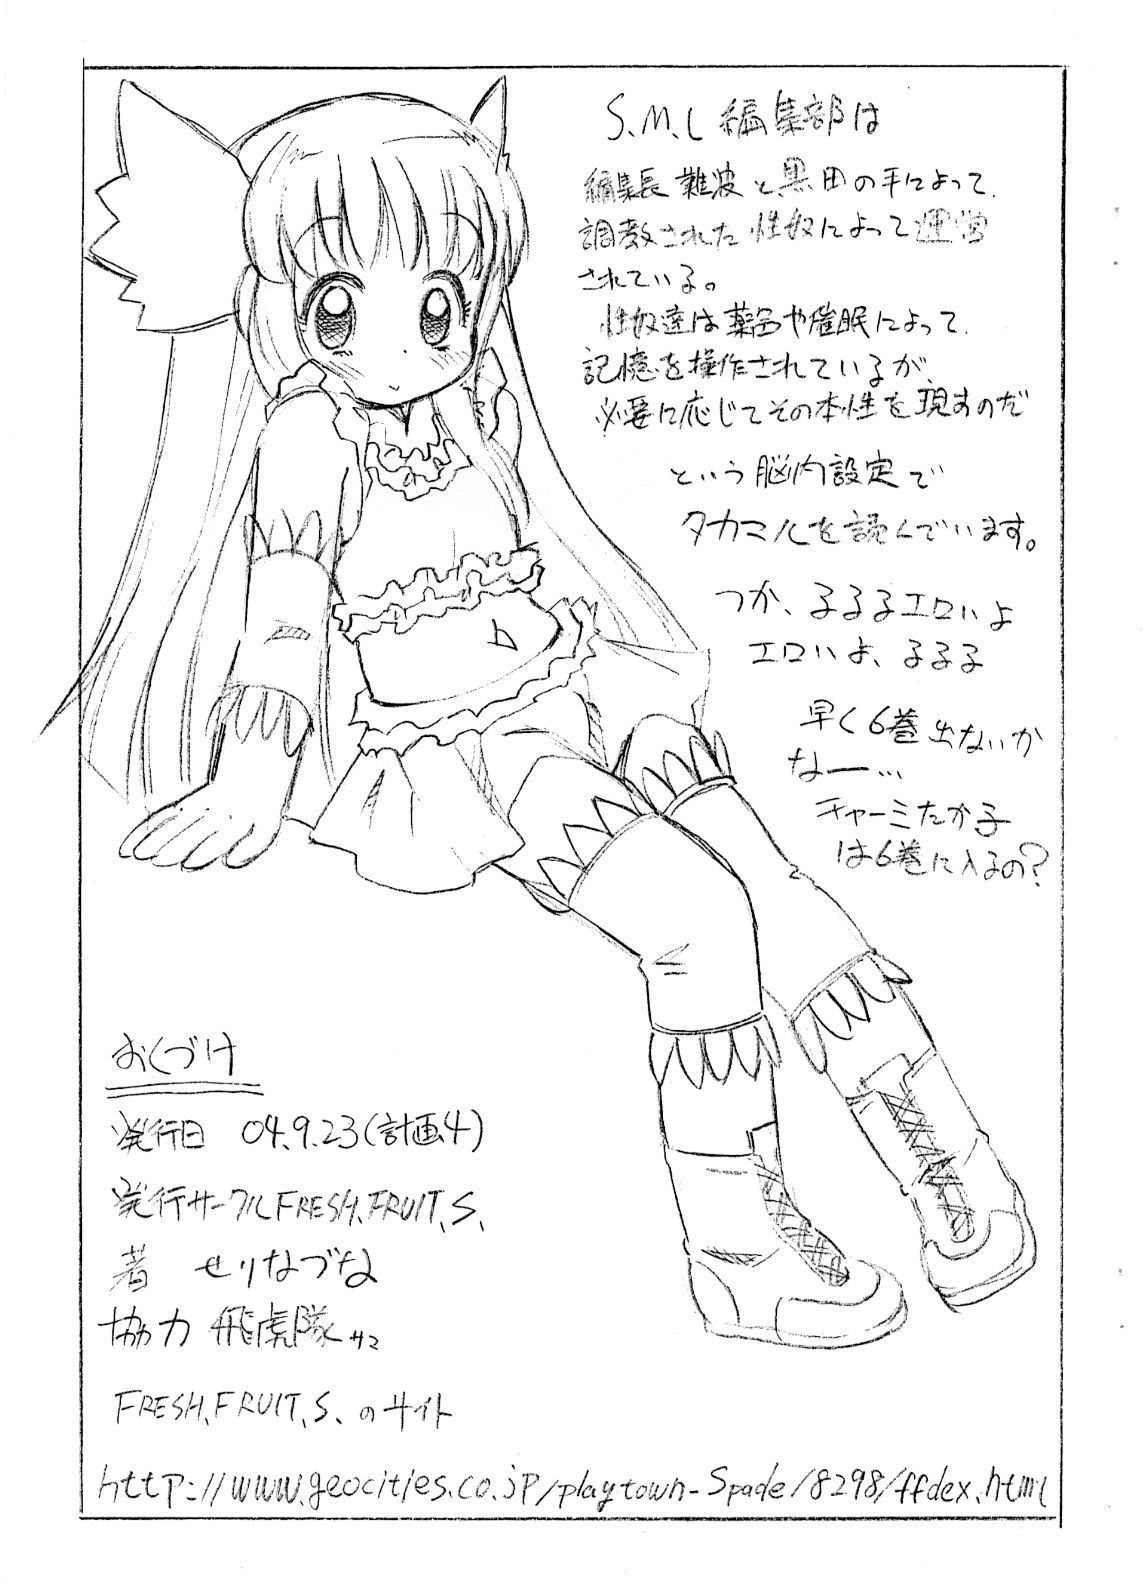 S.M.L編集部は
編集長 難波と黒田の手によって、
調教された性奴によって運営
されている。
性奴達は薬品や催眠によって、
記憶を操作されているが、
必要に応じてその本性を現すのだ
という脳内設定で
タカマルを読んでいます。
つか、るるるエロいよ
エロいよ、るるる
早く6巻出ないか
なー…
チャーミたか子
は6巻に入るの?
おくづけ
発行日 04.9.23(計画4)
発行サークルFRESH.FRUIT.S.
著 せりなづな
協力 飛虎隊サマ
FRESH.FRUIT.S.のサイト
http://www.geocities.co.jp/playtown-Spade/8298/ffdex.html